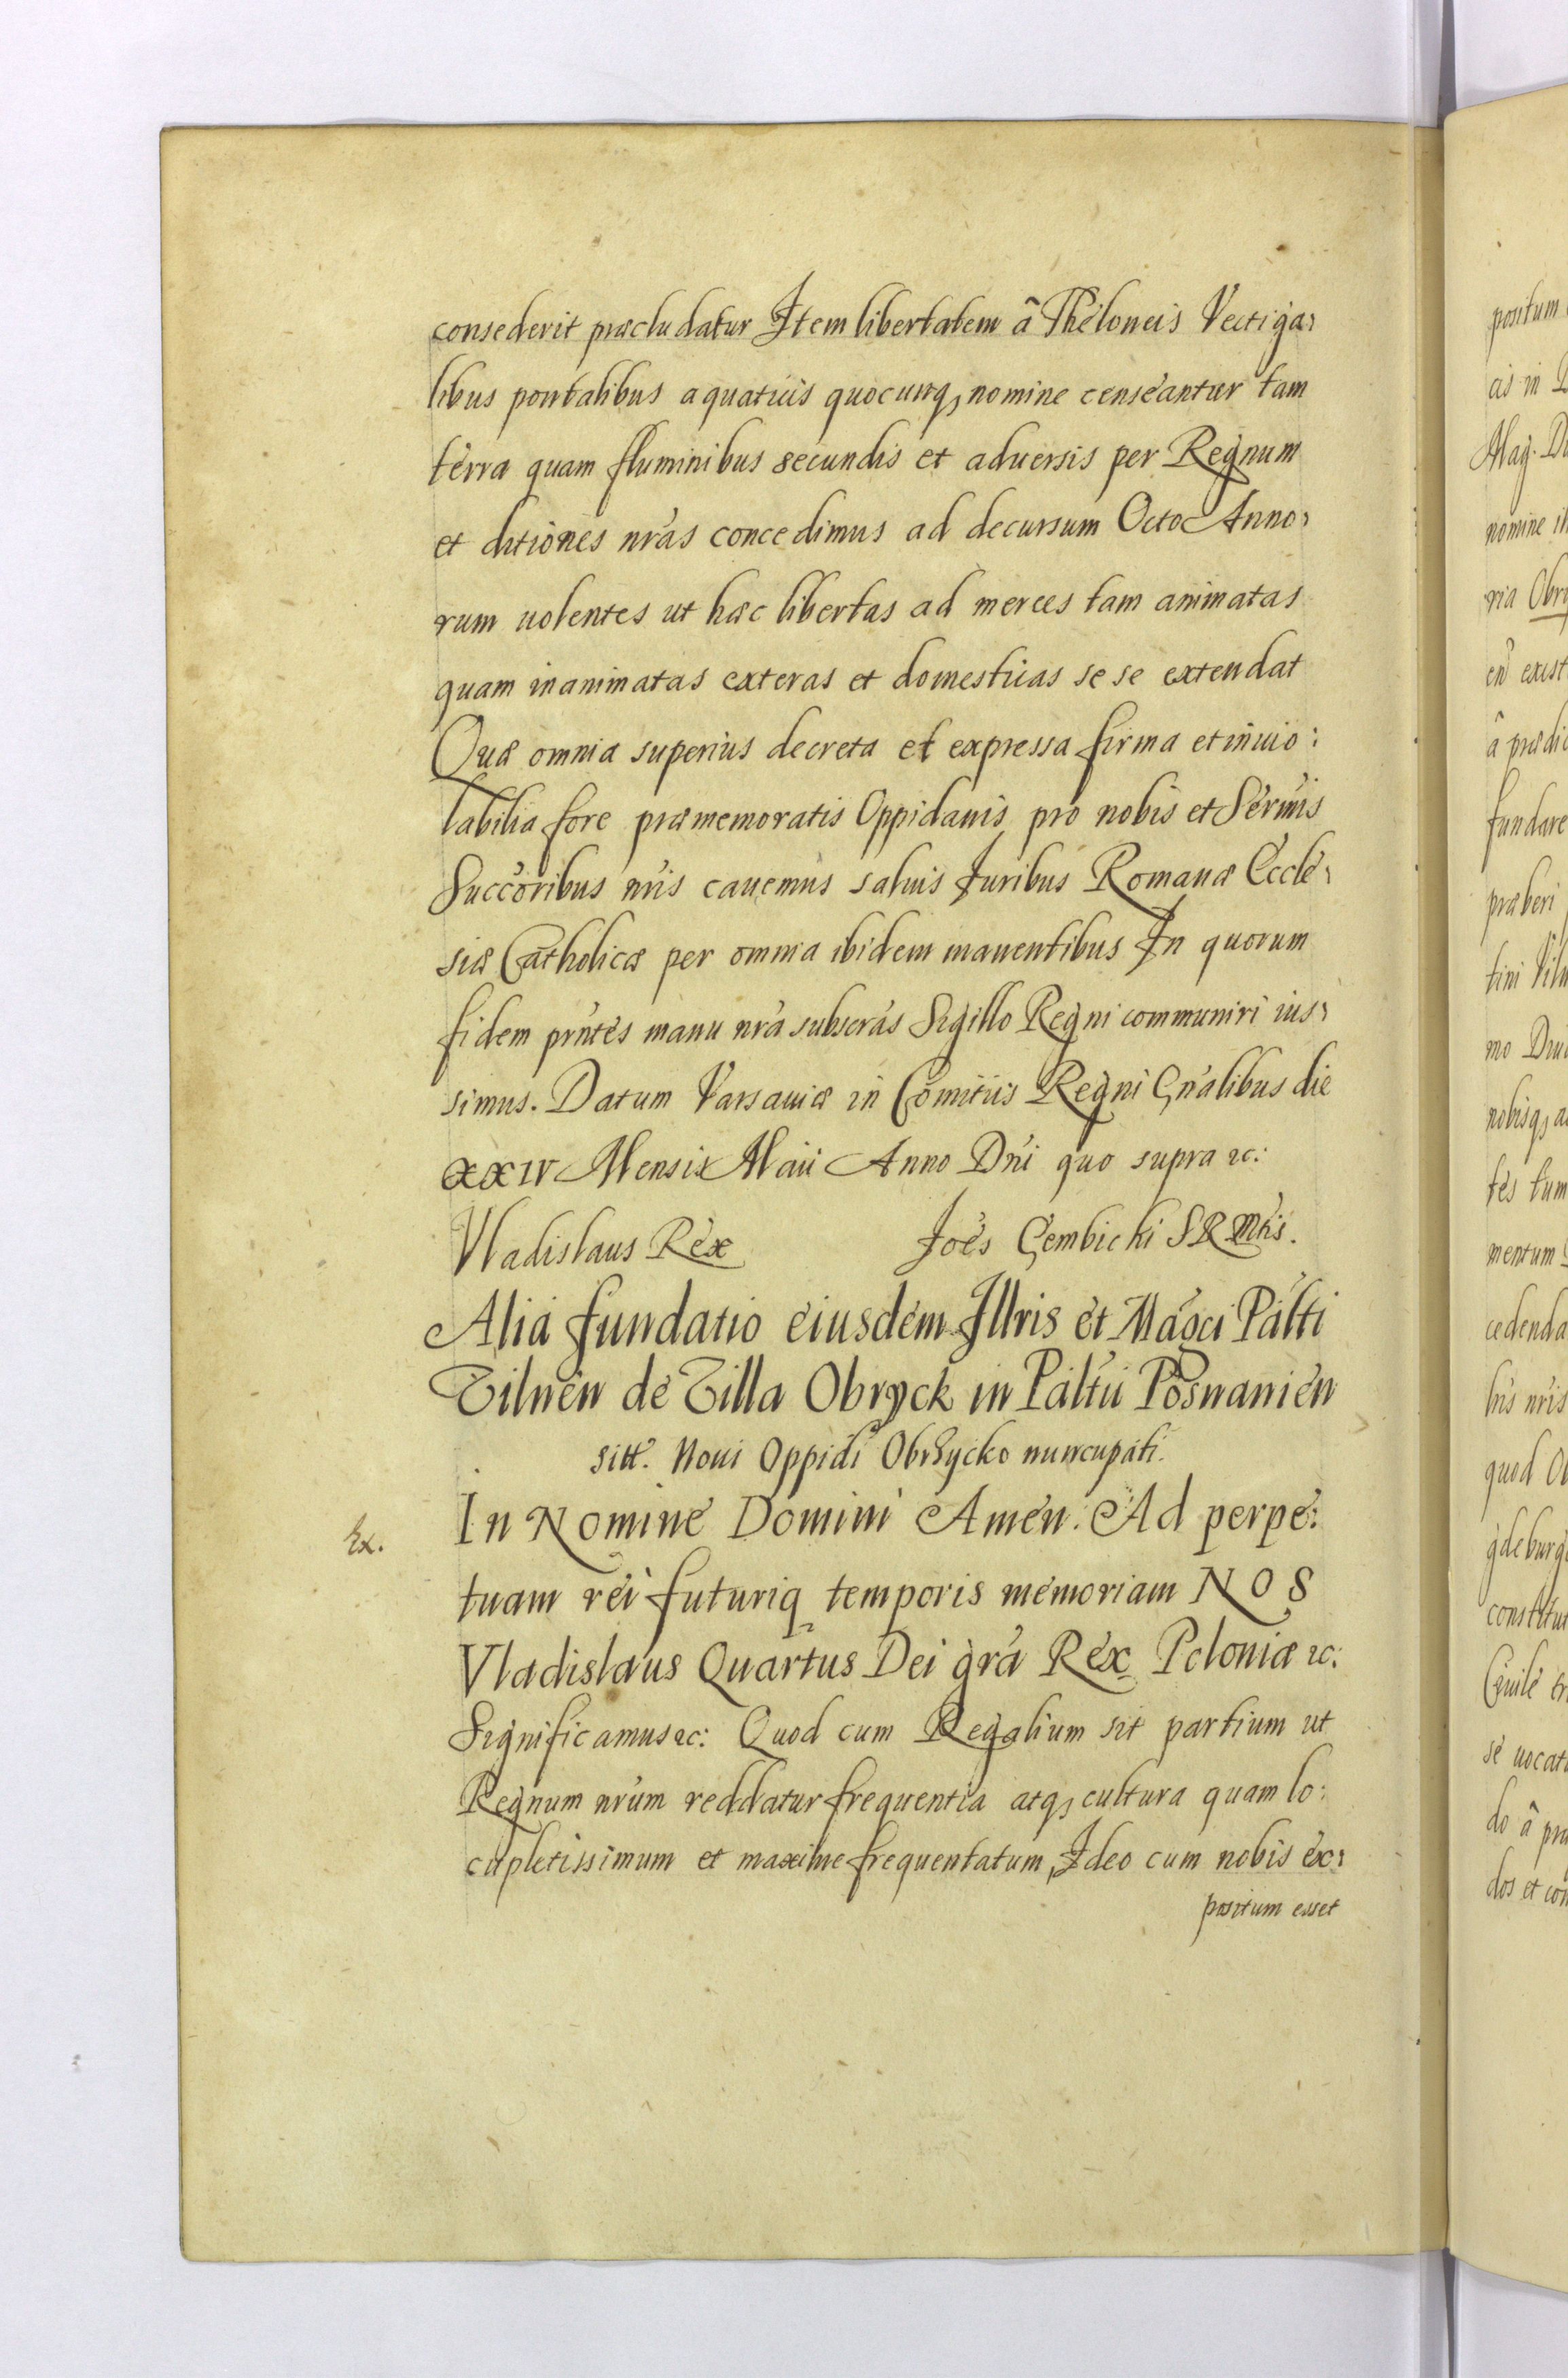 consederit præcludatur Item libertatem â Théloneis Vectiga:
libus pontalibus aquaticis quocunq, nomine censéantur tam
térra quam fluminibus secundis et aduersis per Regnum
et ditiónes nrás concedimus ad decursum Octo Anno:
rum uolentes ut hæc libertas ad merces tam animatas
quam inanimatas exteras et domesticas se se extendat
Quæ omnia superius decreta et expressa firma et inuio:
labilia fore præmemoratis Oppidanis pro nobis et Sérmis
Succóribus nris cauemus saluis Iuribus Romanæ Ecclé:
siæ Catholicæ per omnia ibidem manentibus In quorum
fidem prńtés manu nrá subscrás Sigillo Regni communiri ius:
simus. Datum Varsauiæ in Comitiis Regni Gńalibus die
XXIV Mensis Maii Anno Dńi quo supra ꝛc:
Vladislaus Réx
Joés Gembicki SRMtis.
Alia fundatio eiusdem Illris et Magci Palti
Vilnén dé Villa Obryck in Paltú Posnanién
sitt. Noui Oppidi Obrzycko nuncupati.
Ex.
In Nomine Domini Amén. Ad perpé:
tuam réi futuriq temporis mémoriam NOS
Vladislaus Quartus Dei grá Réx Poloniæ ꝛc:
Significamus ꝛc: Quod cum Regalium sit partium ut
Regnum nrúm reddatur frequentia atq, cultura quam lo:
cupletissimum et maxime frequentatum, Ideo cum nobis éx:
positum esset
positum
cis in
Mag. Du
nomine
ria
én exist
â prædic
fundare
præberi
tini Viln
mo
nobisq, a
tés tum
mentum
cedenda
quod
gdeburg
constitut
Ciuilé
sé uocat
do â
dos et con